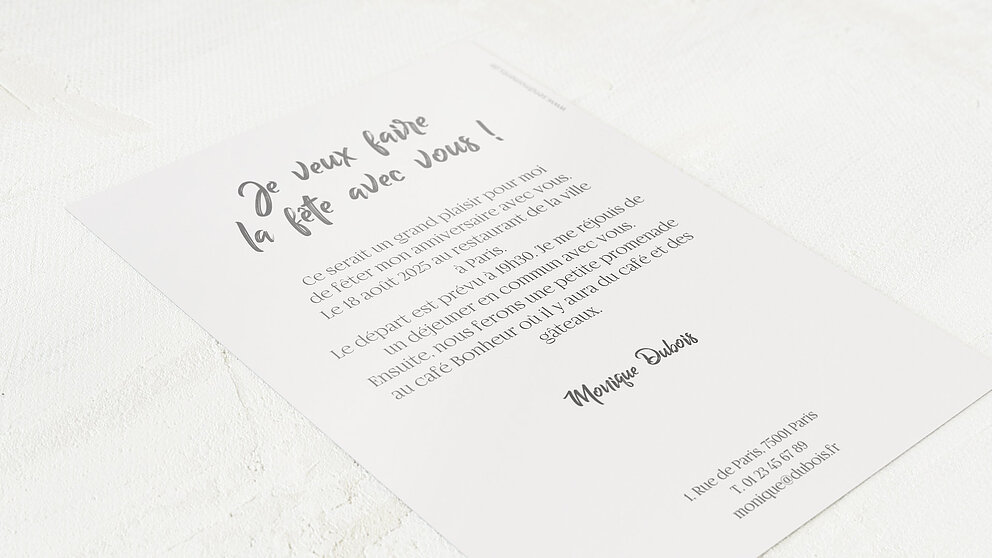 Je veux faire
la fête avec vous !
Ce serait un grand plaisir pour moi
de fêter mon anniversaire avec vous.
Le 18 août 2025 au restaurant de la ville
à Paris.
Le départ est prévu à 19h30. Je me réjouis de
un déjeuner en commun avec vous.
Ensuite, nous ferons une petite promenade
au café Bonheur où il y aura du café et des
gâteaux.
Monique Dubois
1. Rue de Paris, 75001 Paris
T. 01 23 45 67 89
monique@dubois.fr